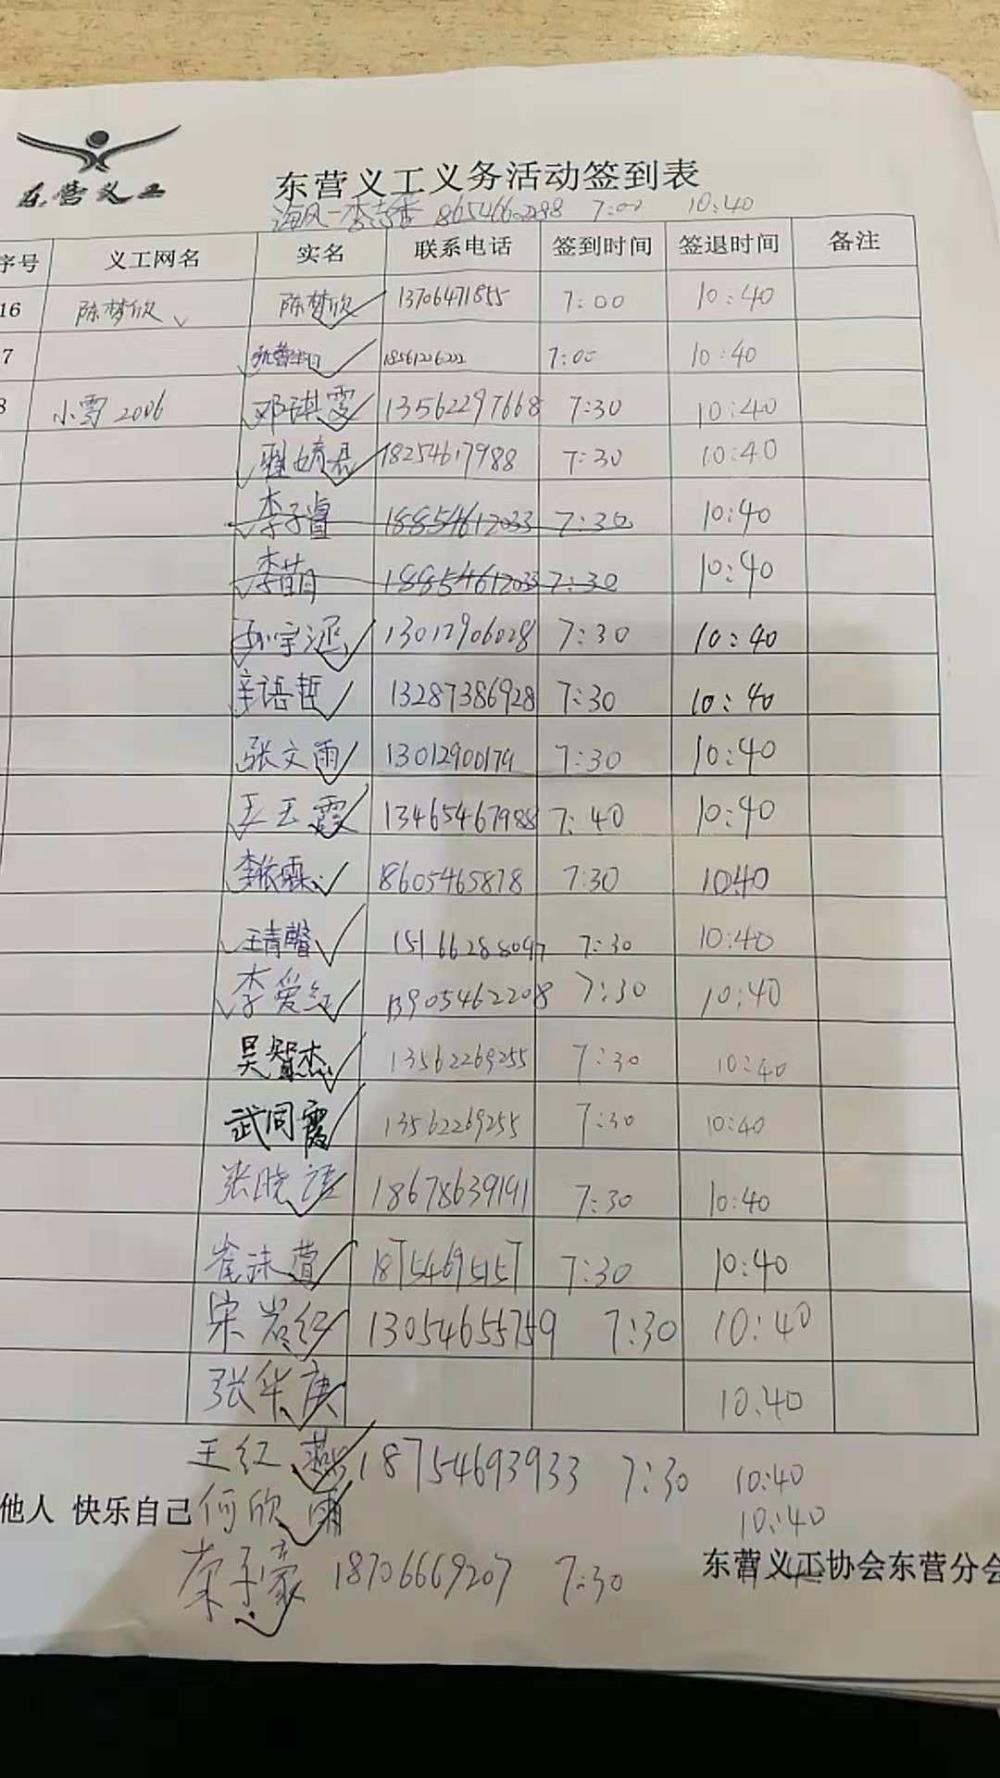 东营义工
东营义工义务活动签到表
海风-李志香 8654660298 7:00 10:40
序号 义工网名 实名 联系电话 签到时间 签退时间 备注
16 陈梦欣 陈梦欣 13706471855 7:00 10:40
7 18561226222 7:00 10:40
8 小雪2006 邓琪雯 13562297668 7:30 10:40
18254617988 7:30 10:40
李子睿 18854612033 7:30 10:40
李苗月 18854612033 7:30 10:40
孙宇涵 13012906028 7:30 10:40
辛语哲 13287386928 7:30 10:40
张文雨 13012900179 7:30 10:40
王玉霞 13465467988 7:40 10:40
李依霖 18605465878 7:30 10:40
王青馨 15166288097 7:30 10:40
李爱红 13905462208 7:30 10:40
吴智杰 13562269255 7:30 10:40
武同霞 13562269255 7:30 10:40
张晓语 18678639191 7:30 10:40
崔沫萱 18754695157 7:30 10:40
宋岩红 13054655759 7:30 10:40
张华庚 10:40
王红燕 18754693933 7:30 10:40
他人 快乐自己 何欣雨 10:40
荣子豪 18706669207 7:30
东营义工协会东营分会